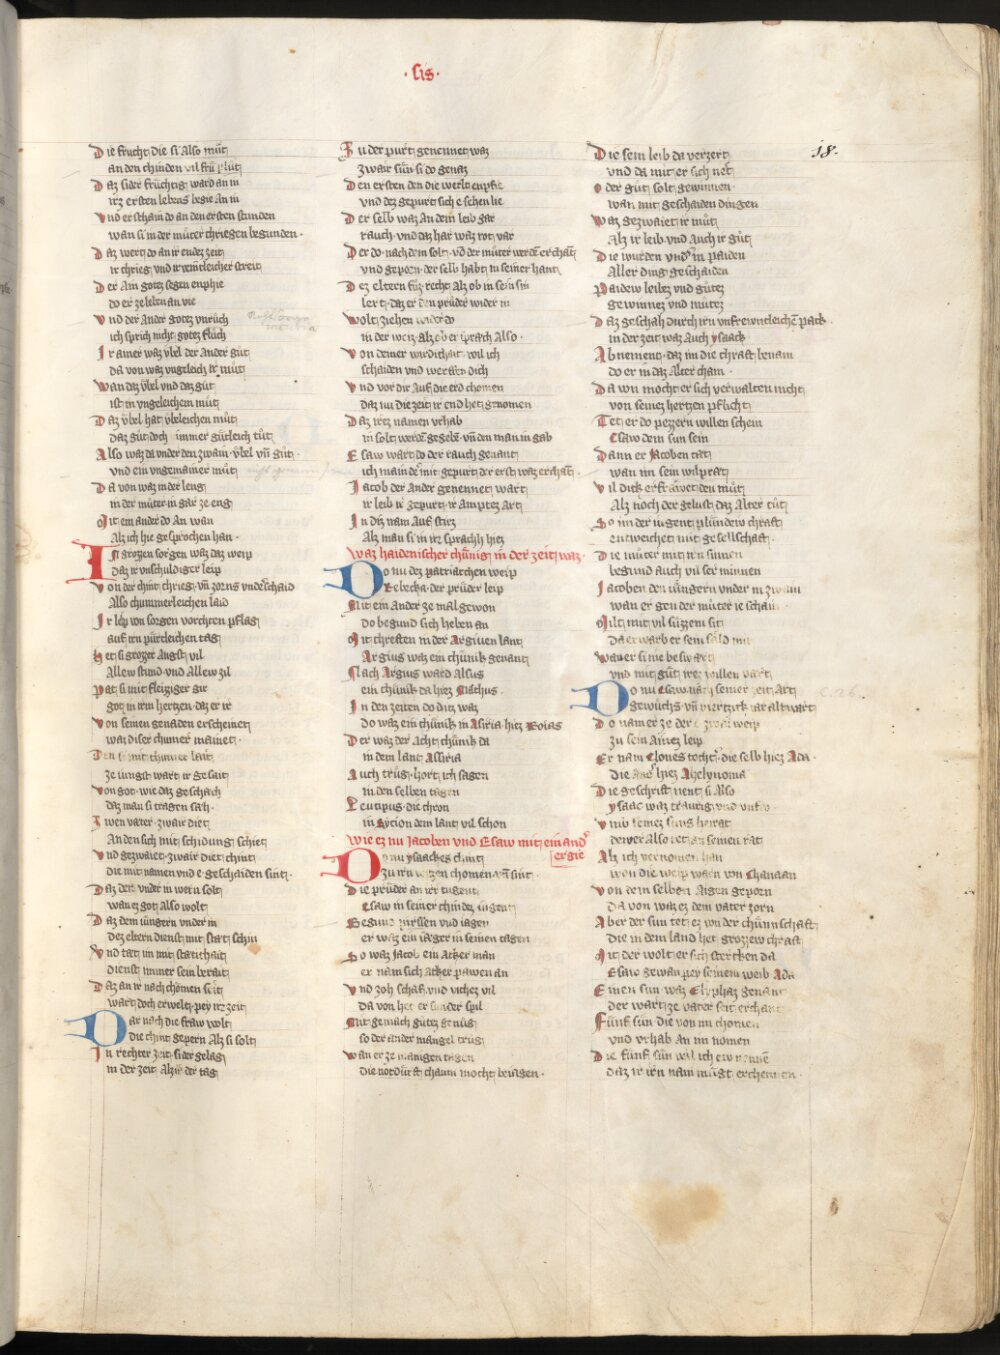 · sis ·
18.
Die frucht die si also můt
an den chinden vil frů plůt
Daz sider früchtig ward an in
irz ersten lebens begie an in
Vnd erscham do an den ersten stunden
wan si in der můter chriegen begunden ·
Daz wert do an ir endez zeit
ir chrieg vnd ir vnmůtleicher streit
Der am gotes segen enphie
do er ze leben an vie
Vnd der ander gotez vnrůch
ich sprich nicht gotez flůch
Ir ainer waz ybel der ander gůt
da von waz vngleich ir můt
Wan daz ybel vnd daz gůt
ist in vngeleichem můt
Daz ybel hat ybleichen můt
daz gůt doch immer gůtleich tůt
Also waz da vnder den zwain ybel vn̄ gůt
vnd ein vngemainer můt
Da von waz in der leng
in der můter in gar ze eng
Mit ein ander do an wan
Alz ich hie gesprochen han ·
In grozzen sorgen waz daz weip
Daz ir vnschuldiger leip
Von der chint chrieg vn̄ zorns vnderschaid
Also chummerleichen laid
Ir lep von sorgen vorchten pflag
auf irn pürtleichen tag
Het si grozzer angst vil
Allew stund vnd allew zil
Pat si mit fleiziger gir
got in irm hertzen daz er ir
Von seinen genaden erscheinet
waz diser chumer mainet ·
Den si mit chumer lait
ze iungst wart ir gesait
Von got wie daz geschach
daz man si tragen sach ·
Zwen vater zwair diet
An den sich mit schidung schiet
Vnd gezwaiet zwair diet chint
die mit namen vnd e geschaiden sint ·
Daz der vnder in wern solt
wan ez got also wolt
Daz dem iüngern vnder in
dez eltern dienst mit stat schin
Vnd tat im mit stætichait
dienst immer sein berait
Daz an ir nach chömen seit
wart doch erwelt pey irz zeit
Dar nach die fraw wolt
die chint gepern alz si solt
In rechter zeit si der gelag
in der zeit alz ir der tag
Zu der purt genennet waz
zwair sün si do genaz
Den ersten den die werlt enpfie
vnd dez gepurt sich e schen lie
Der selb waz an dem leib gar
rauch vnd daz har waz rot var
Der do nach dem solt vō der můter werdē erchāt
vnd gepern der selb habt in seiner hant
Dez eltern füz recht alz ob in sein sin
lert daz er den prüder wider in
Wolt ziehen wider do
in der weiz alz ob er sprach also ·
Von deiner wirdichait wil ich
schaiden vnd werffen dich
Vnd vor dir auf die erd chomen
daz nu die zeit ir end het genomen
Daz irez namen vrhab
in solt werdē gesebt vn̄ den man in gab
Esaw ward do der rauch genant
ich main dē mit gepurt der erst waz erchāt ·
Jacob der ander genennet wart
ir leib ir gepurt ir amptez art
In diz nam auf stirz
Alz man si in irz sprach hiez
Waz haidenischer chünig in der zeit waz ·
Do nu dez patriarchen weip
Rebecka der prüder leip
Mit ein ander ze mal gewon
do begund sich heben an
Mit chreften in der Argiuen lant
Argius waz ein chünik genant
Nach Argius ward alsus
ein chünik da hiez Mathus ·
In den zeiten do ditz waz
do waz ein chünik in Asiria hiez Roias
Der waz der acht chünik da
in dem lant Assiria
Auch trůg hort ich sagen
in den selben tagen
Leutipus die chron
in Lycion dem lant vil schon
Wie ez nu Jacoben vnd Esaw mit ein and'
ergie
Do nu ysaackes chint
zu irn witzen chomen vn̄ sint
Die prüder an irr tugent
Esaw in seiner chindez iugent
Begund pirssen vnd iagen
er waz ein iæger in seinen tagen
So waz Jacob ein acker man
er nam sich acker pawen an
Vnd zoh schaf vnd vichez vil
da von het er sunder spil
Mit gemach gůtez genůg
so der ander mangel trůg
Wan er ze manigen tagen
die notdürft chaum mocht beiagen ·
Die sein leib da verzert
vnd da mit er sich nert
Oder gůt solt gewinnen ·
wan mit geschaiden dingen
Waz gezwaiet ir můt
Alz ir leib vnd auch ir gůt
Die wurden vnd' in paiden
Aller ding geschaiden
Paidew leibez vnd gůtez
gewinnez vnd můtez
Daz geschah durch irn vnfrewntleichē pack ·
in der zeit waz auch ysaack
Abnement daz im die chraft benam
do er in daz alter cham ·
Da von mocht er sich verwalten nicht
von seinez hertzen pflicht
Tet er do pezzern willen schein
Esaw dem sun sein
Dann er Jacoben tat
wan im sein wilprat
Vil dick erfrawet den můt
Alz noch der gelust daz alter tůt
So im der iugent plündern chraft
entweichet mit gesellschaft ·
Die můter mit irn sinnen
begund auch vil ser minnen
Jacoben den iüngern vnder in zwain
wan er gen der můter ie schain ·
Milt mit vil süzzem sit
da erwarb er sein sæld mit
Wan er si nie beswart
vnd mit gůt irez willen vart
Do nu Esaw nach seiner zeit art
gewuchs vn̄ viertzick iar alt wart
Do nam er ze der e zwai weip
zu sein ainez leip
Er nam Elones tocht' die selb hiez Ada ·
Die and' hiez Ahelynoma
Die geschrift nent si also
ysaac waz traurig vnd vnfro
Vmb seinez suns heirat
der wer also tet an seinen rat
Alz ich vernomen han
won die weip warn von Chanaan
Von dem selben aigen geporn
da von waz ez dem vater zorn
Aber der sun tet ez vm der chünnschaft
die in dem land het grozzew chraft
Mit der wolt er sich stercken da
Esaw gewan pey seinem weib Ada
Einen sun waz Elyphaz genant
der wart ze vater seit erchant
Fünf sün die von im chomen
vnd vrhab an im nomen
Die fünf sün wil ich ew nennē
daz ir irn nam mügt erchennen ·
C. 26.